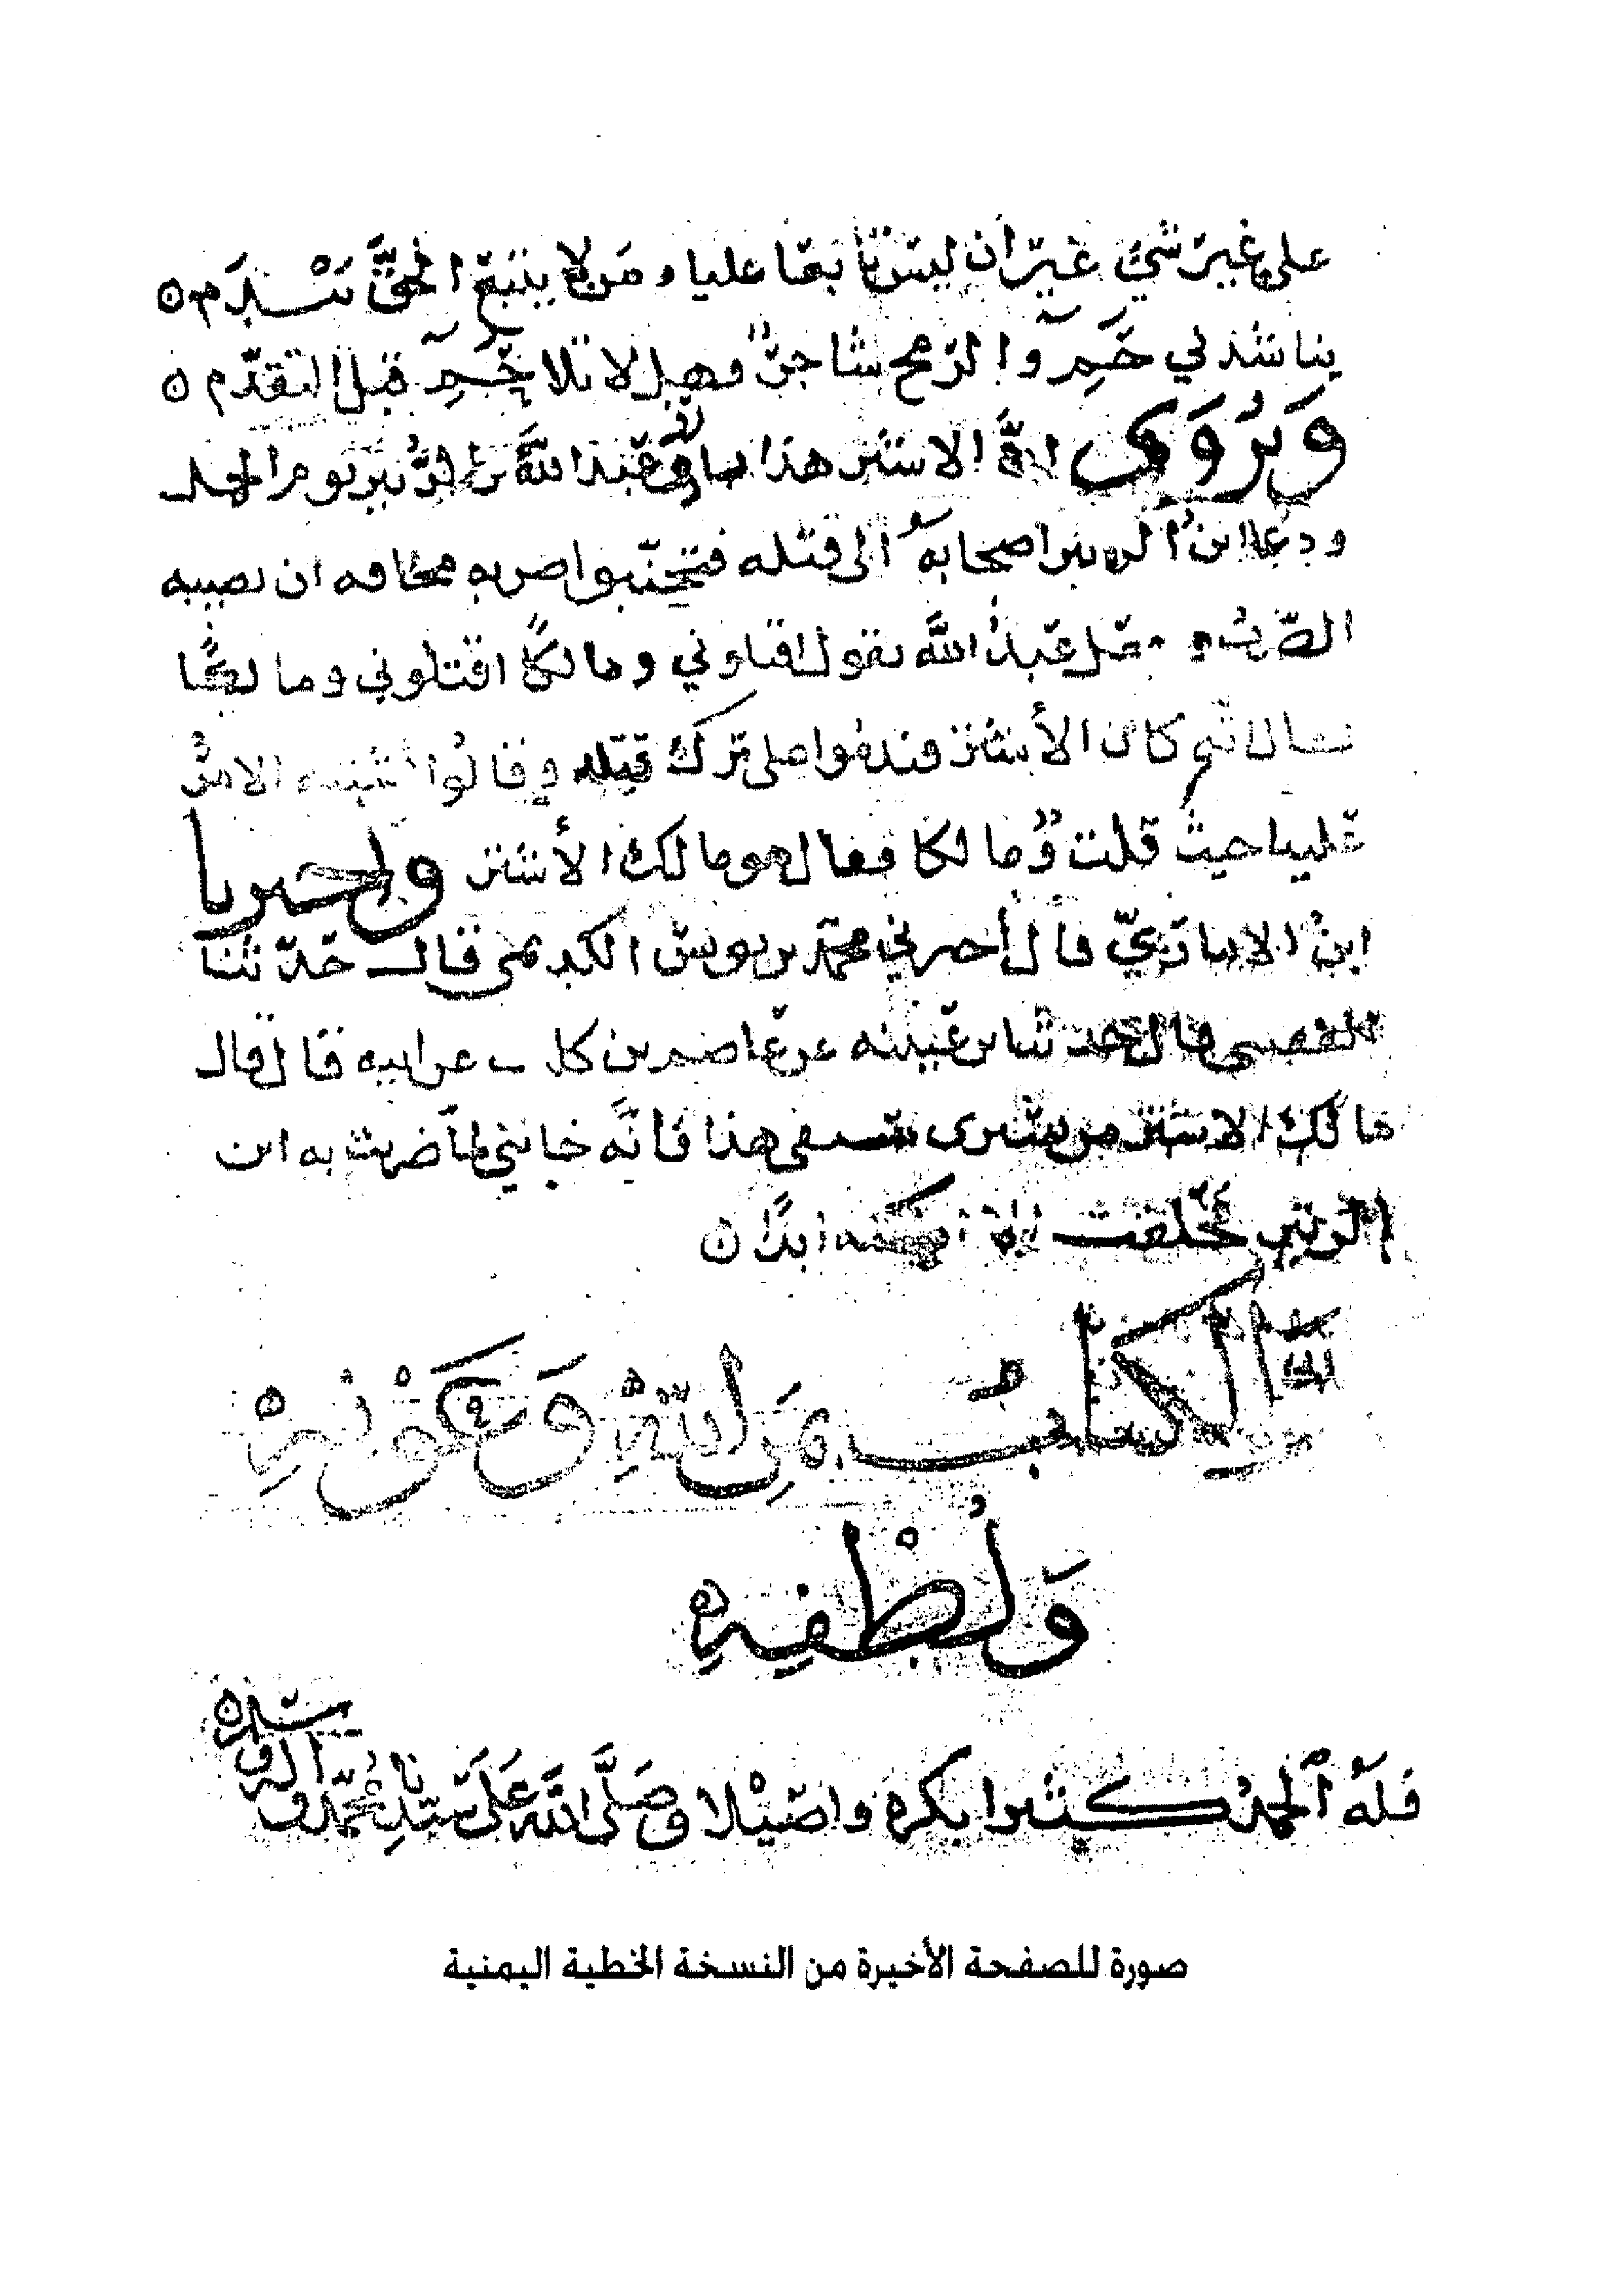 على غير شيء غير ان ليس تابعا عليا ومن لا يتبع الحق يندم
يناشدني حم والرمح شاجر فهلا تلا حم قبل التقدم
ويروى ان الاشتر هذا عبد الله بن الزبير يوم الجمل
ودعا ابن الزبير اصحابه الى قتله فتجنبوا ضربه مخافه ان تصيبه
عبد الله يقول اقتلوني ومالكا اقتلوني ومالكا
كان الأشتر فندموا على ترك قتله وقالوا الامر
علينا حيث قلت ومالكا فقال هو مالك الأشتر واخبرنا
ابن الانباري قال أخبرني محمد بن يونس الكديمي قال حدثنا
قال حدثنا بن عيينه عن عاصم بن كليب عن ابيه قال قال
مالك الاشتر من يشتري سيفي هذا فانه خانني لما ضربت به ابن
الزبير فحلفت ابدا
الكتاب بمن الله وعونه
ولطفه
فله الحمد كثيرا بكره واصيلا وصلى الله على سيدنا محمد واله و
صورة للصفحة الأخيرة من النسخة الخطية اليمنية